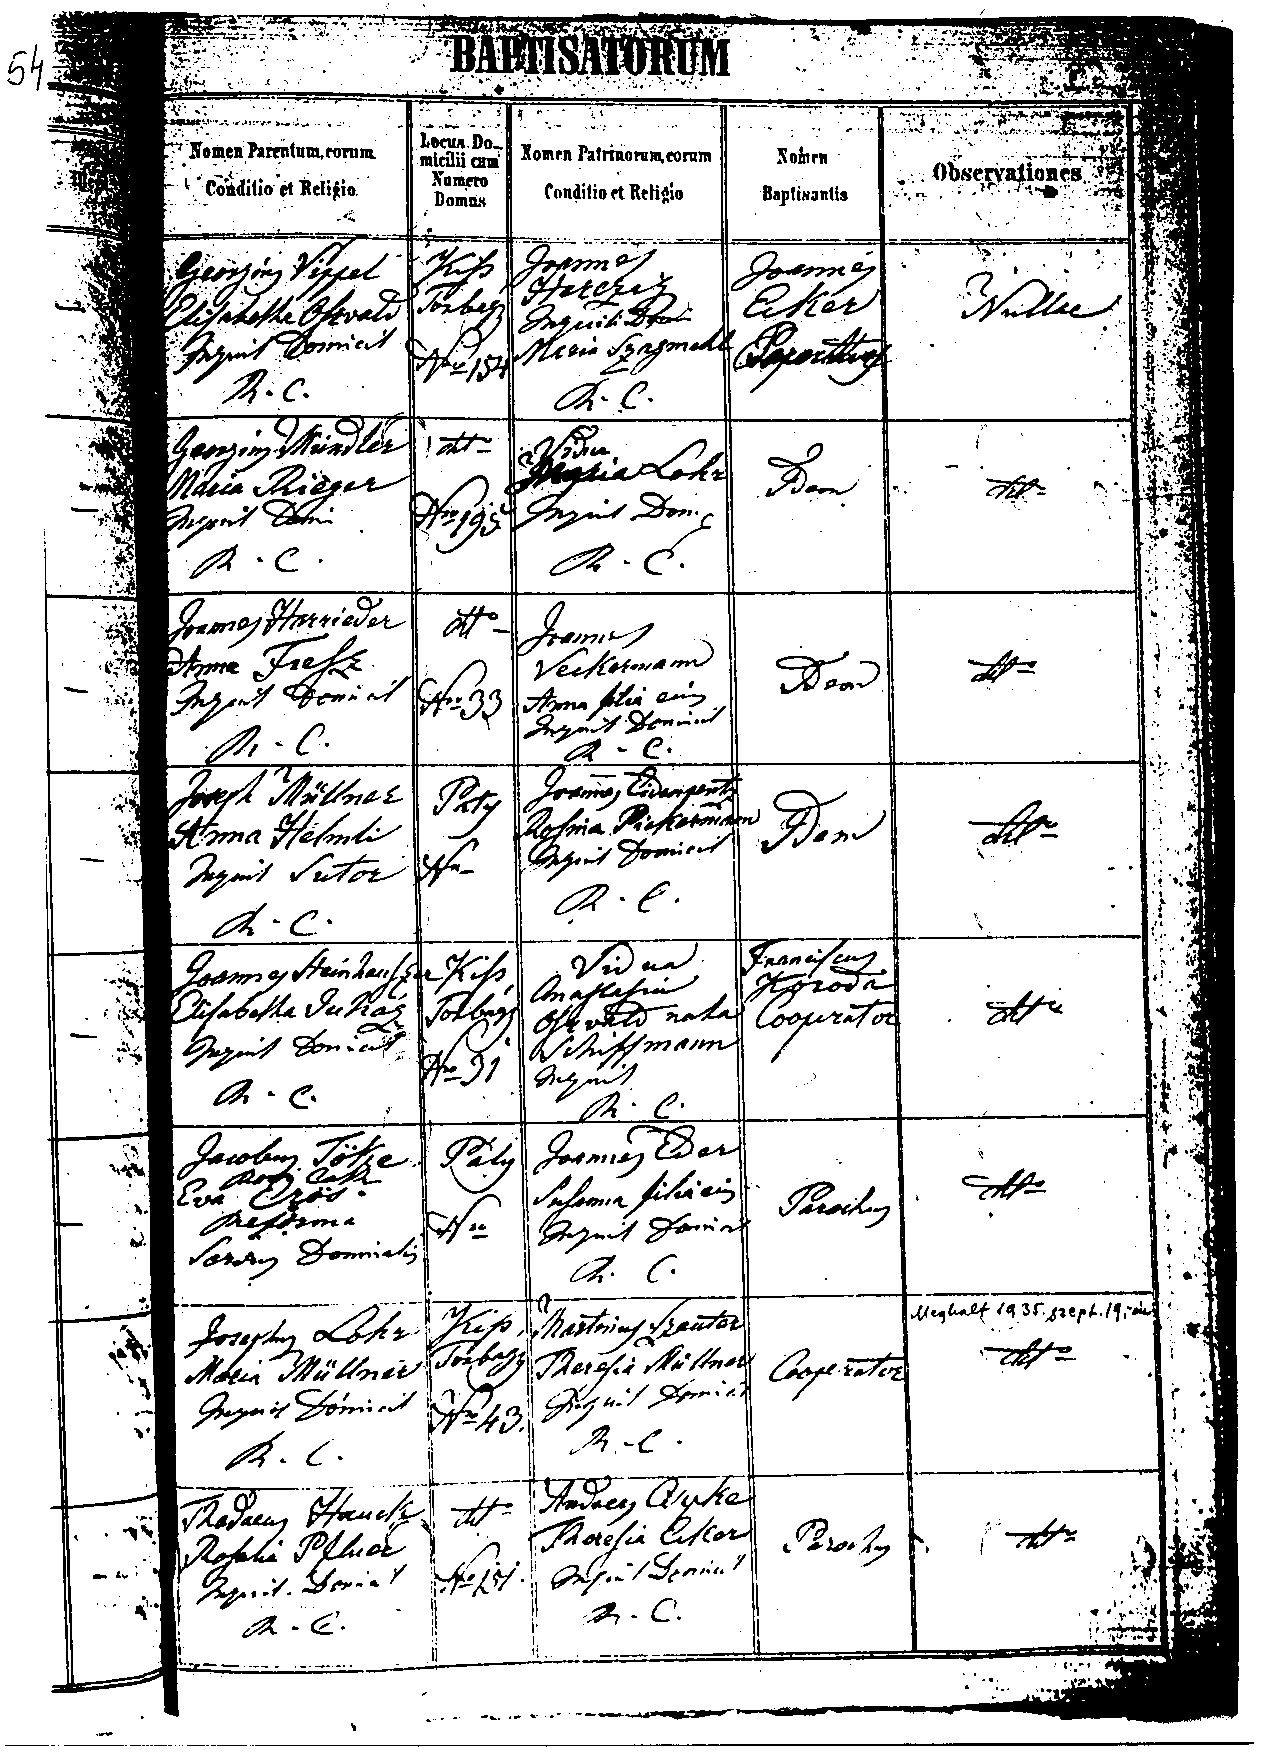 54
BAPTISATORUM
Nomen Parentum, eorum
Conditio et Religio.
Locus Do-
micilii cum
Numero
Domus
Nomen Patrinorum, eorum
Conditio et Religio
Nomen
Baptisantis
Observationes
Georgius Vippel
Elisabetha Osvald
Inquil Domicil
R. C.
Kiss
Torbágy
Nro 154
Joannes
Herczig
Inquil. Dom
Maria
R. C.
Joannes
Eker
Parochus
Nullae
Georgius Mindler
Maria Rieger
Inquil Domi
R. C.
dtto
Nro 195
Vidua
Maria Lohr
Inquil Dom.
R. C.
Idem
dtto
Joannes Harrieder
Anna Fresz
Inquil Domicil
R. C.
dtto
Nro 33
Joannes
Veckermann
Anna filia eius
Inquil Domicil
R. C.
Idem
dtto
Joseph Müllner
Anna Helmli
Inquil Sutor
R. C.
Páty
Nro
Joannes
Rosina
Inquil Domicil
R. C.
Idem
dtto
Joannes Steinhauszer
Elisabetha Juhász
Inquil Domicil
R. C.
Kiss
Torbágy
Nro 31
Vidua
Anastasia
Osvald nata
Schiffmann
Inquil
R. C.
Franciscus
Koroda
Cooperator
dtto
Jacobus Tőke
Rom Cath
Eva Erös
Reforma
Domicialis
Páty
Nro
Joannes Eder
Susanna filia eius
Inquil Domicil
R. C.
Parochus
dtto
Josephus Lohr
Maria Müllner
Inquil Domicil
R. C.
Kiss
Torbágy
Nro 43.
Martinus Szauter
Theresia Müllner
Inquil Domicil
R. C.
Cooperator
Meghalt 1935. szept. 19.-én
dtto
Thadaeus Hauck
Rosalia Pfluer
Inquil. Domicil
R. C.
dtto
Nro 151.
Andreas
Theresia Eker
Inquil Domicil
R. C.
Parochus
dtto